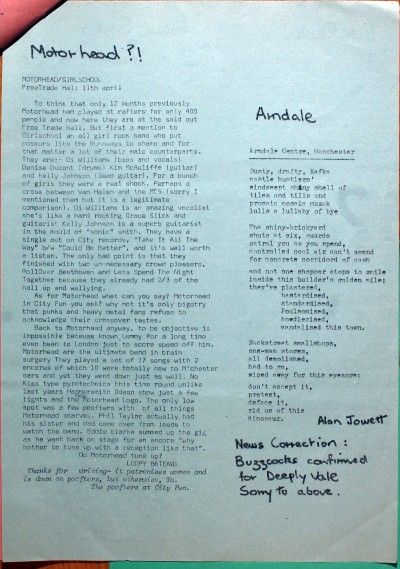 Motorhead ?!
MOTORHEAD/GIRLSCHOOL
FreeTrade Hall 11th april
To think that only 12 months previously
Motorhead had played at rafters for only 400
people and now here they are at the sold out
Free Trade Hall. But first a mention to
Girlschool an all girl rock band who put
poseurs like the Runaways to shame and for
that matter a lot of their male counterparts.
They are:- Di Williams (bass and vocals)
Denise Dufort (drums) Kim McAuliffe (guitar)
and Kelly Johnson (lead guitar). For a bunch
of girls they were a real shock. Perhaps a
cross between Van Halen and the MC5 (sorry I
mentioned them but it is a legitimate
comparison). Di Williams is an amazing vocalist
she's like a hard rocking Grace Slick and
guitarist Kelly Johnson is a superb guitarist
in the mould of "sonic" smith. They have a
single out on City records "Take It All The
Way" b/w "Could Be Better", and it's well worth
a listen. The only bad point is that they
finished with two un-necessary crowd pleasers,
RollOver Beethoven and Lets Spend The Night
Together because they already had 2/3 of the
hall up and wallying.
As for Motorhead what can you say? Motorhead
in City Fun you ask? why not it's only bigotry
that punks and heavy metal fans refuse to
acknowledge their crossover tastes.
Back to Motorhead anyway, to be objective is
impossible because known Lemmy for a long time
even been to London just to score speed off him.
Motorhead are the ultimate band in brain
surgery They played a set of 17 songs with 2
encores of which 10 were totally new to M'chester
ears and yet they went down just as well. No
Kiss type pyrotechnics this time round unlike
last years Hammersmith Odeon show just a few
lights and the Motorhead Logo. The only low
spot was a few poofters with of all things
Motorhead scarves. Phil Taylor actually had
his sister and dad come over from leeds to
watch the band. Eddie Clarke summed up the gig
as he went back on stage for an encore "why
bother to tune up with a reception like that".
Do Motorhead tune up?
LOOFY BATEAUX
Thanks for writing- it patronises women and
is down on poofters, but otherwise, Ta.
The poofters at City Fun.
Arndale
Arndale Centre, Manchester
Dusty, drafty, Kafka
castle hustlers'
windswept shiny shell of
tiles and tills and
prosaic mosaic muzak
lulls a lullaby of bye
The shiny-brickyard
shuts at six, guards
patrol you as you spend,
controlled cool air can't amend
for concrete corridors of cash
and not one shopper stops to smile
inside this builder's golden mile;
they've plastered,
bastardised,
standardised,
Poulsonised,
bowdlerised,
vandalised this town.
Backstreet smallshops,
one-man stores,
all demolished,
had to go,
wiped away for this eyesore:
don't accept it,
protest,
deface it,
rid us of this
dinosaur.
Alan Jowett
News Correction :
Buzzcocks confirmed
for Deeply Vale
Sorry to above.